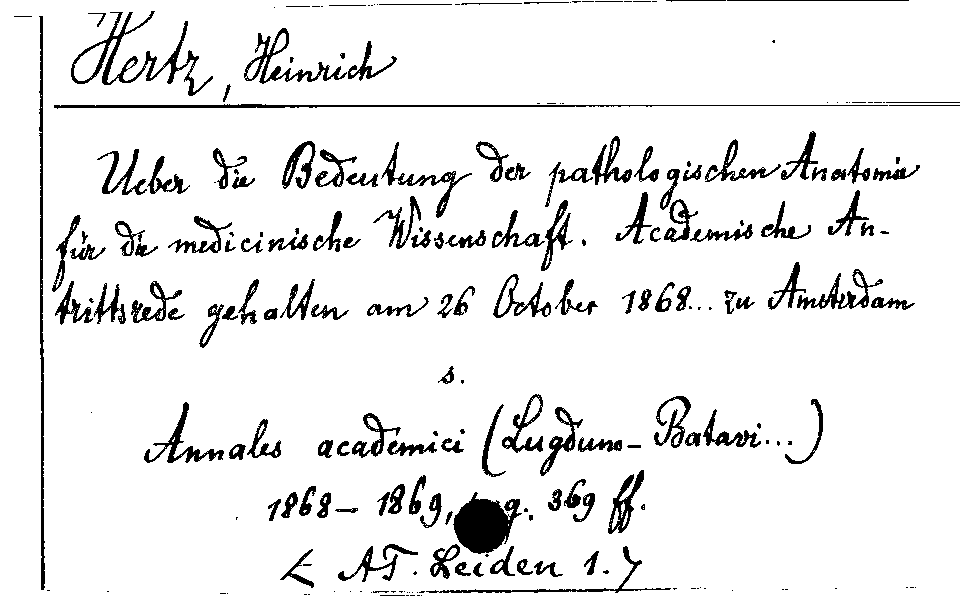 Hertz, Heinrich
Ueber die Bedeutung der pathologischen Anatomie
für die medicinische Wissenschaft. Academische An-
trittsrede gehalten am 26 October 1868... zu Amsterdam
s.
Annales academici (Lugduno-Batavi...)
1868-1869, 369 ff.
AT. Leiden 1.7